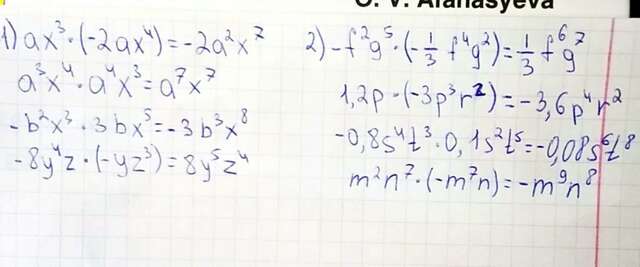 O. V. Afanasyeva
1) ax³·(-2ax⁴)=-2a²x⁷
a³x⁴·a⁴x³=a⁷x⁷
-b²x³·3bx⁵=-3b³x⁸
-8y⁴z·(-yz³)=8y⁵z⁴
2) -f²g⁵·(-1/3 f⁴g²)=1/3 f⁶g⁷
1,2p·(-3p³r²)=-3,6p⁴r²
-0,8s⁴t³·0,1s²t⁵=-0,08s⁶t⁸
m²n⁷·(-m⁷n)=-m⁹n⁸